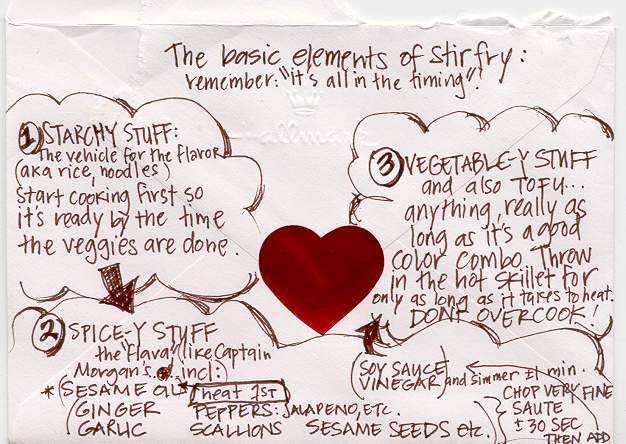 The basic elements of Stirfry:
remember: "it's all in the timing".
allmark
1 STARCHY STUFF:
The vehicle for the flavor
(aka rice, noodles)
Start cooking first so
it's ready by the time
the veggies are done.
2 SPICE-Y STUFF
the "flava" (like Captain
Morgan's. incl:
* SESAME OIL heat 1ST
GINGER PEPPERS: JALAPENO, ETC.
GARLIC SCALLIONS SESAME SEEDS etc.
CHOP VERY FINE
SAUTE
± 30 SEC
THEN ADD
(SOY SAUCE
VINEGAR) and simmer ±1 min.
3 VEGETABLE-Y STUFF
and also TOFU...
anything, really as
long as it's a good
color combo. Throw
in the hot skillet for
only as long as it takes to heat.
DONT OVERCOOK!